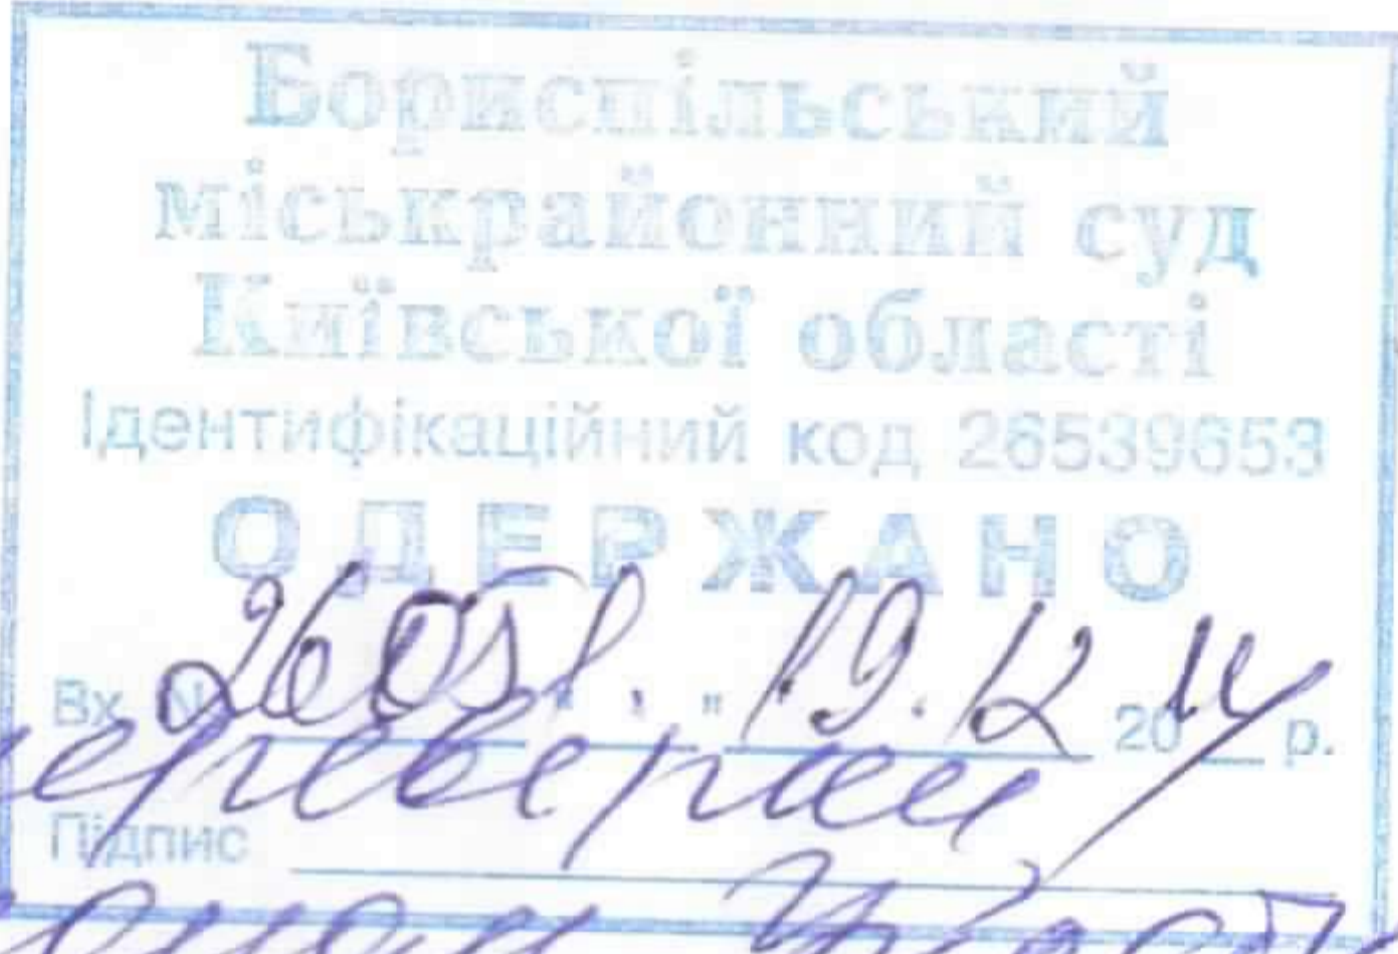 Бориспільський
міськрайонний суд
Київської області
Ідентифікаційний код 26539653
ОДЕРЖАНО
Вх. № 26051. " " 19.12 2014 р.
Підпис